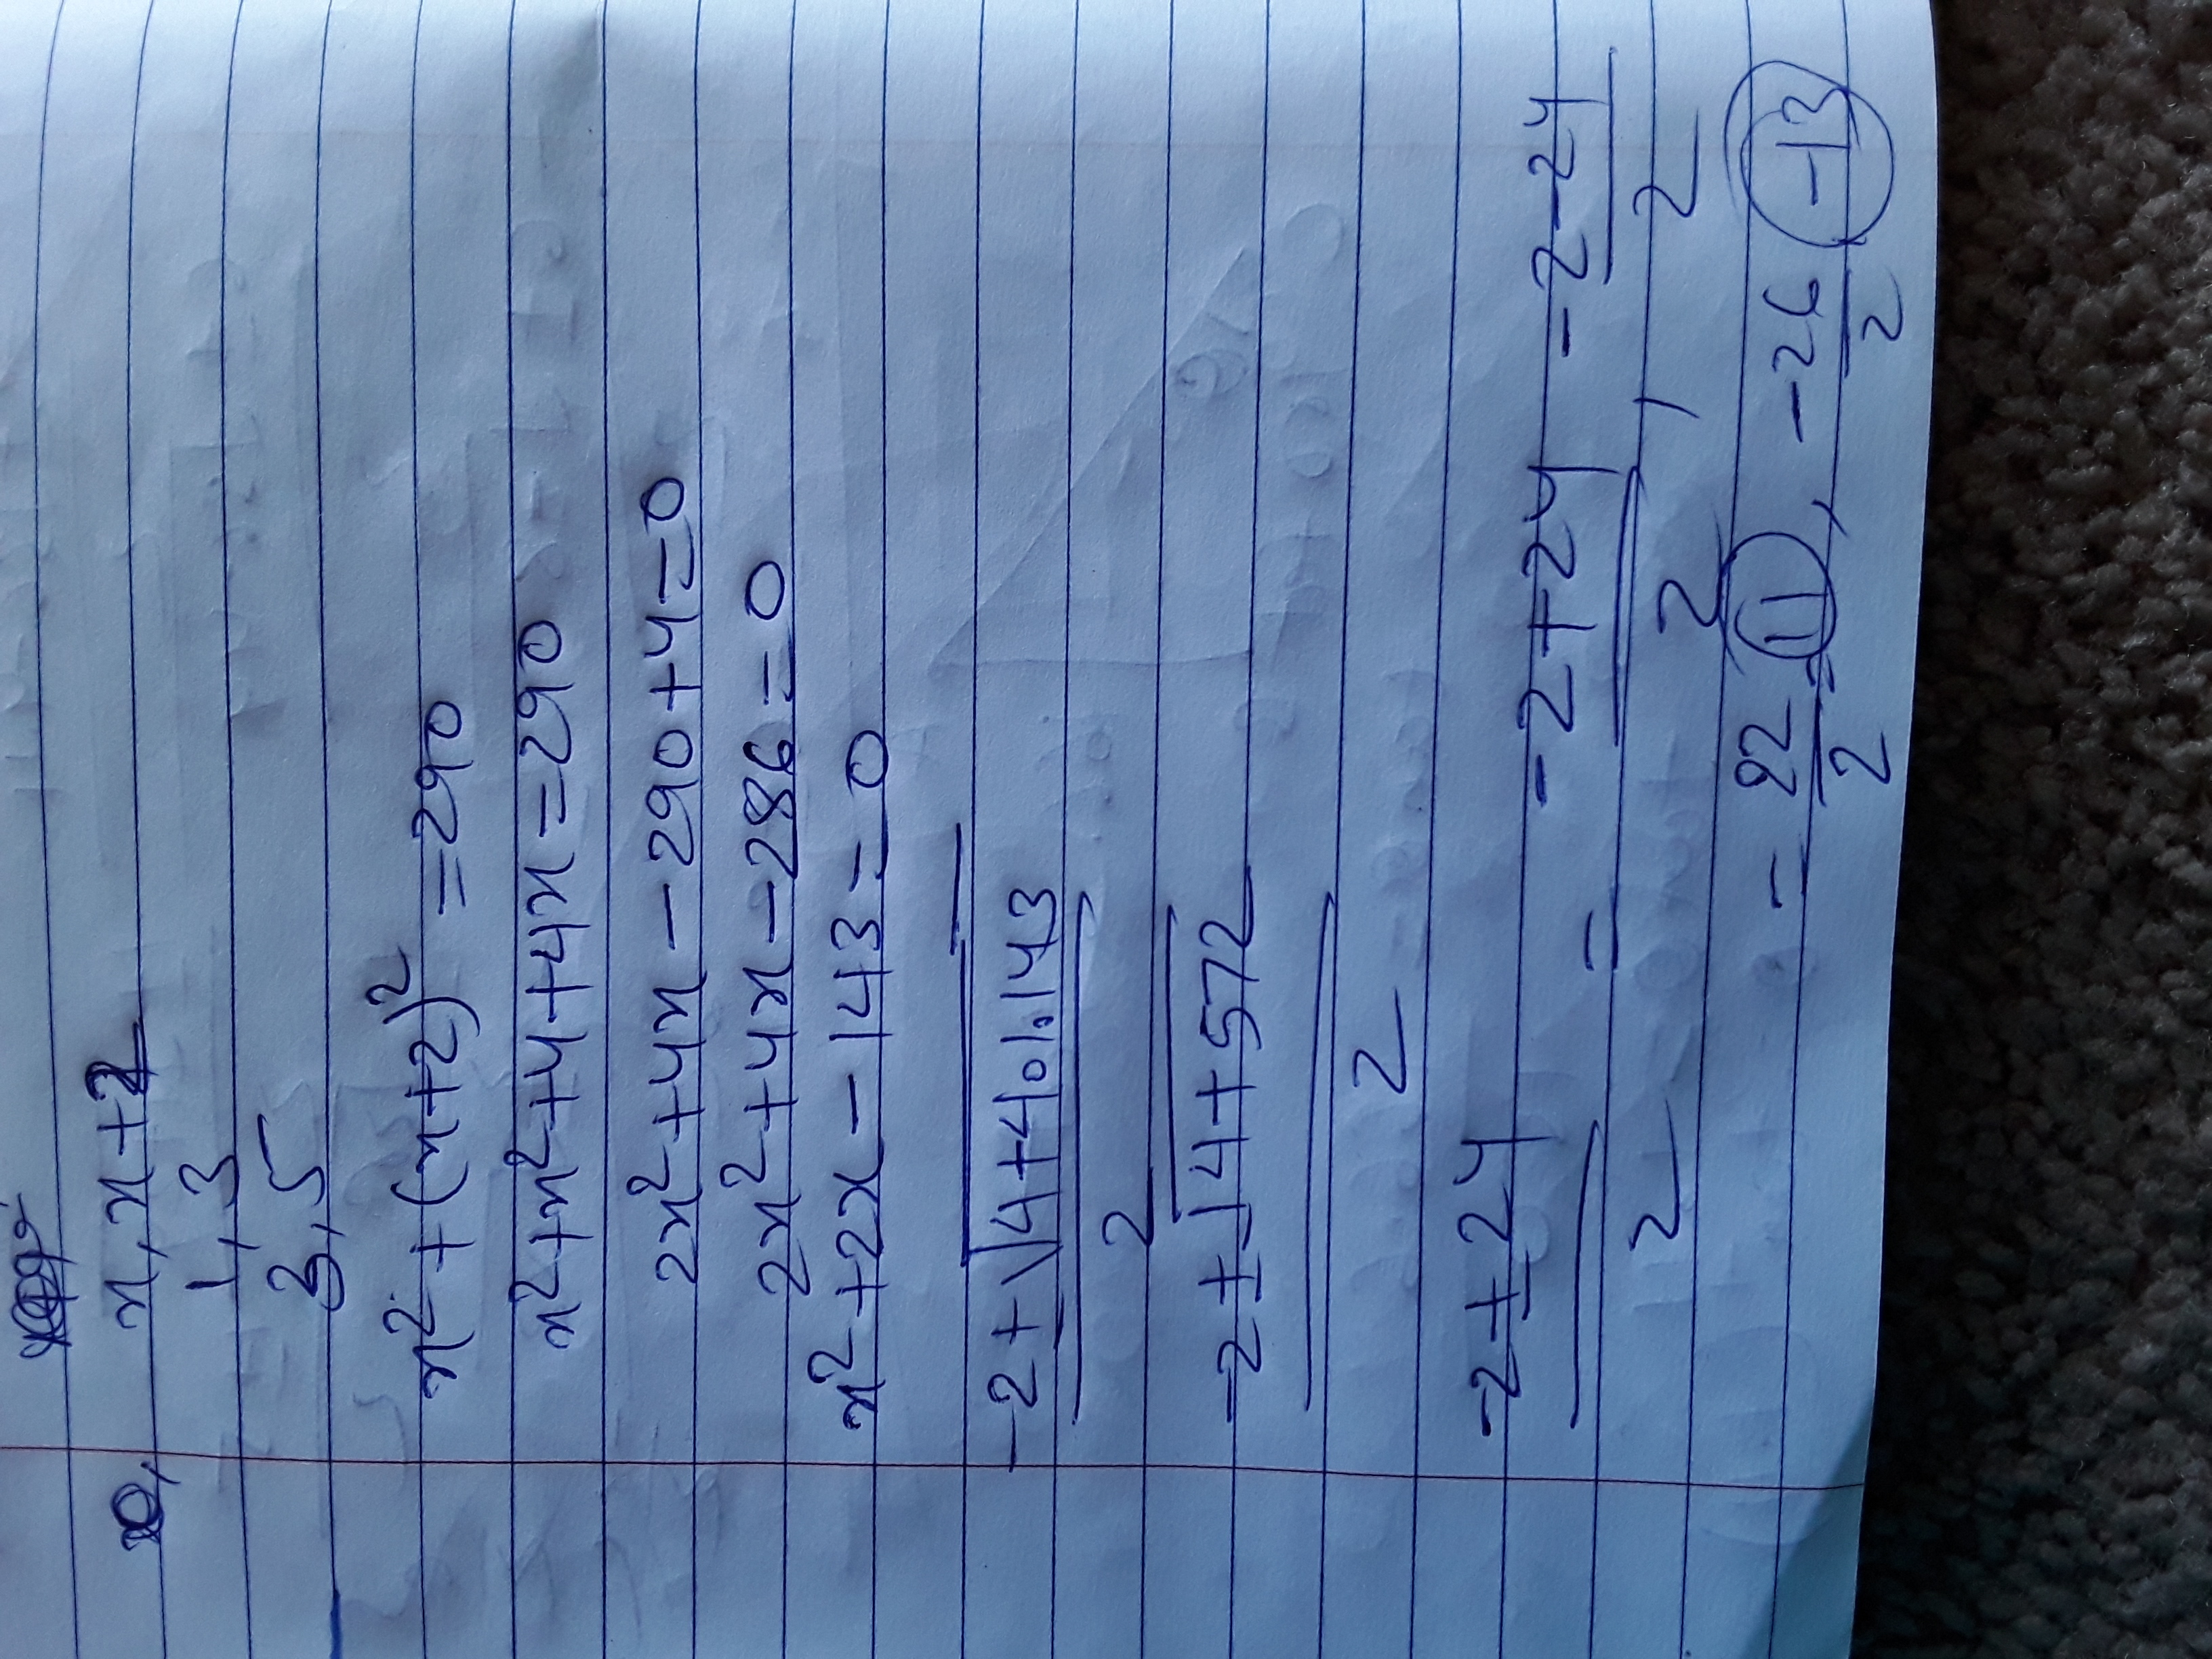 x, x+2
1, 3
3, 5
x² + (x+2)² = 290
x² + x² + 4 + 4x = 290
2x² + 4x - 290 + 4 = 0
2x² + 4x - 286 = 0
x² + 2x - 143 = 0
-2 ± √4+4·1·143 / 2
-2 ± √4+572 / 2
-2 ± 24 / 2 = -2+24 / 2 , -2-24 / 2
= 22 / 2 = 11 , -26 / 2 -13